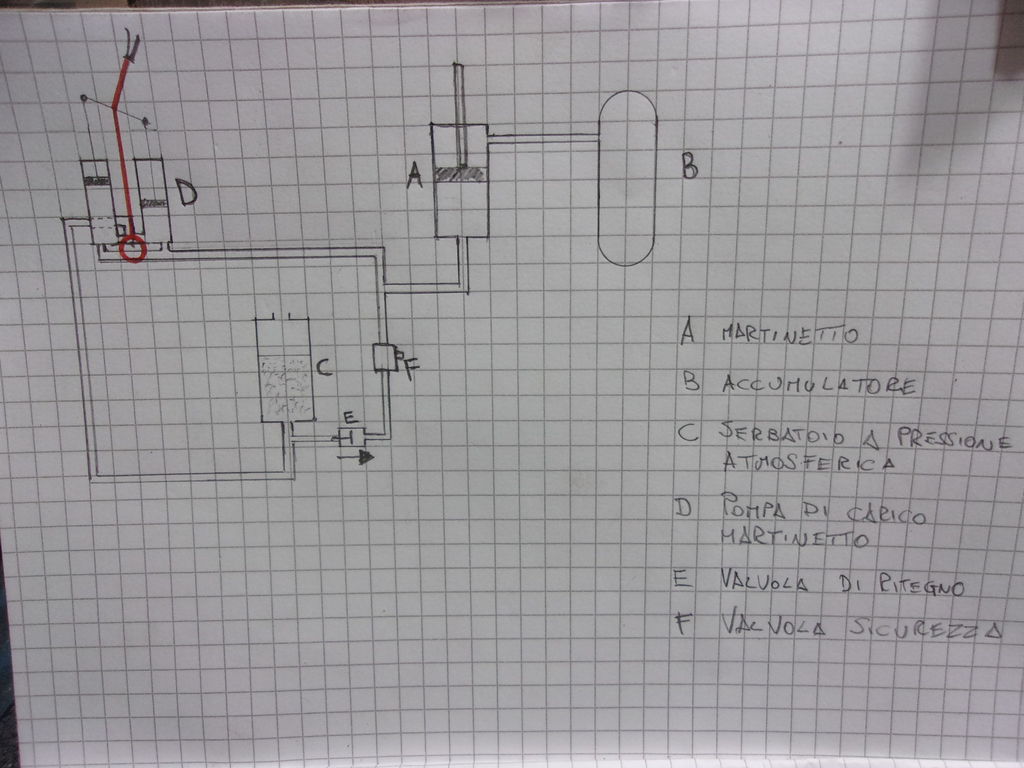 D
A
B
C
F
E
A MARTINETTO
B ACCUMULATORE
C SERBATOIO A PRESSIONE
ATMOSFERICA
D POMPA DI CARICO
MARTINETTO
E VALVOLA DI RITEGNO
F VALVOLA SICUREZZA